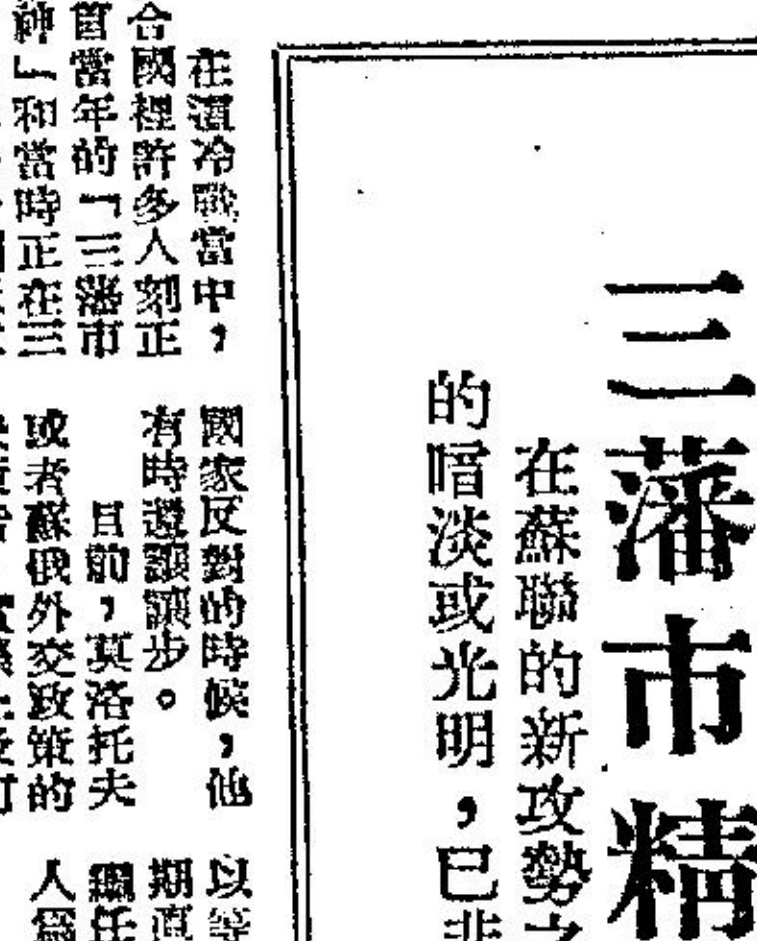 三藩市精
在蘇聯的新攻勢之
的暗淡或光明，已非
在這冷戰當中，
合國裡許多人刻正
當年的「三藩市
神」和當時正在三
國家反對的時候，他
有時還謙讓步。
目前，莫洛托夫
或者蘇俄外交政策的
以等
期直
繼任
人爲